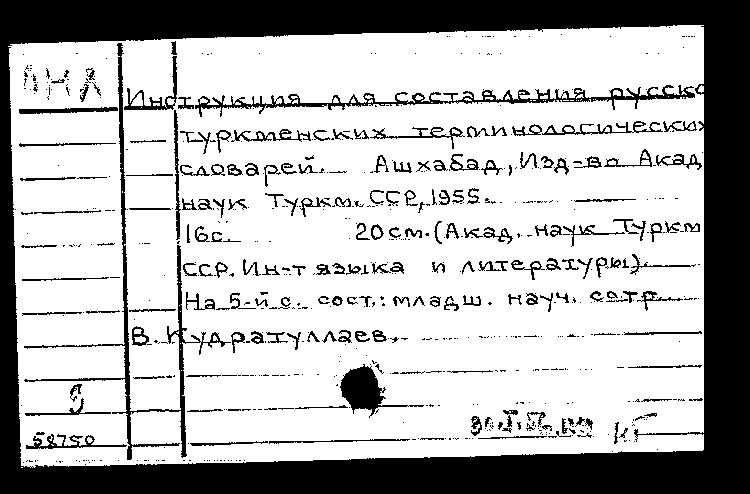 АНЛ
Инструкция для составления русско
туркменских терминологических
словарей. Ашхабад, Изд-во Акад
наук Туркм. ССР, 1955.
16с. 20 см. (Акад. наук Туркм
ССР. Ин-т языка и литературы).
На 5-й с. сост.: младш. науч. сотр.
В. Кудратуллаев.
58750
КГ